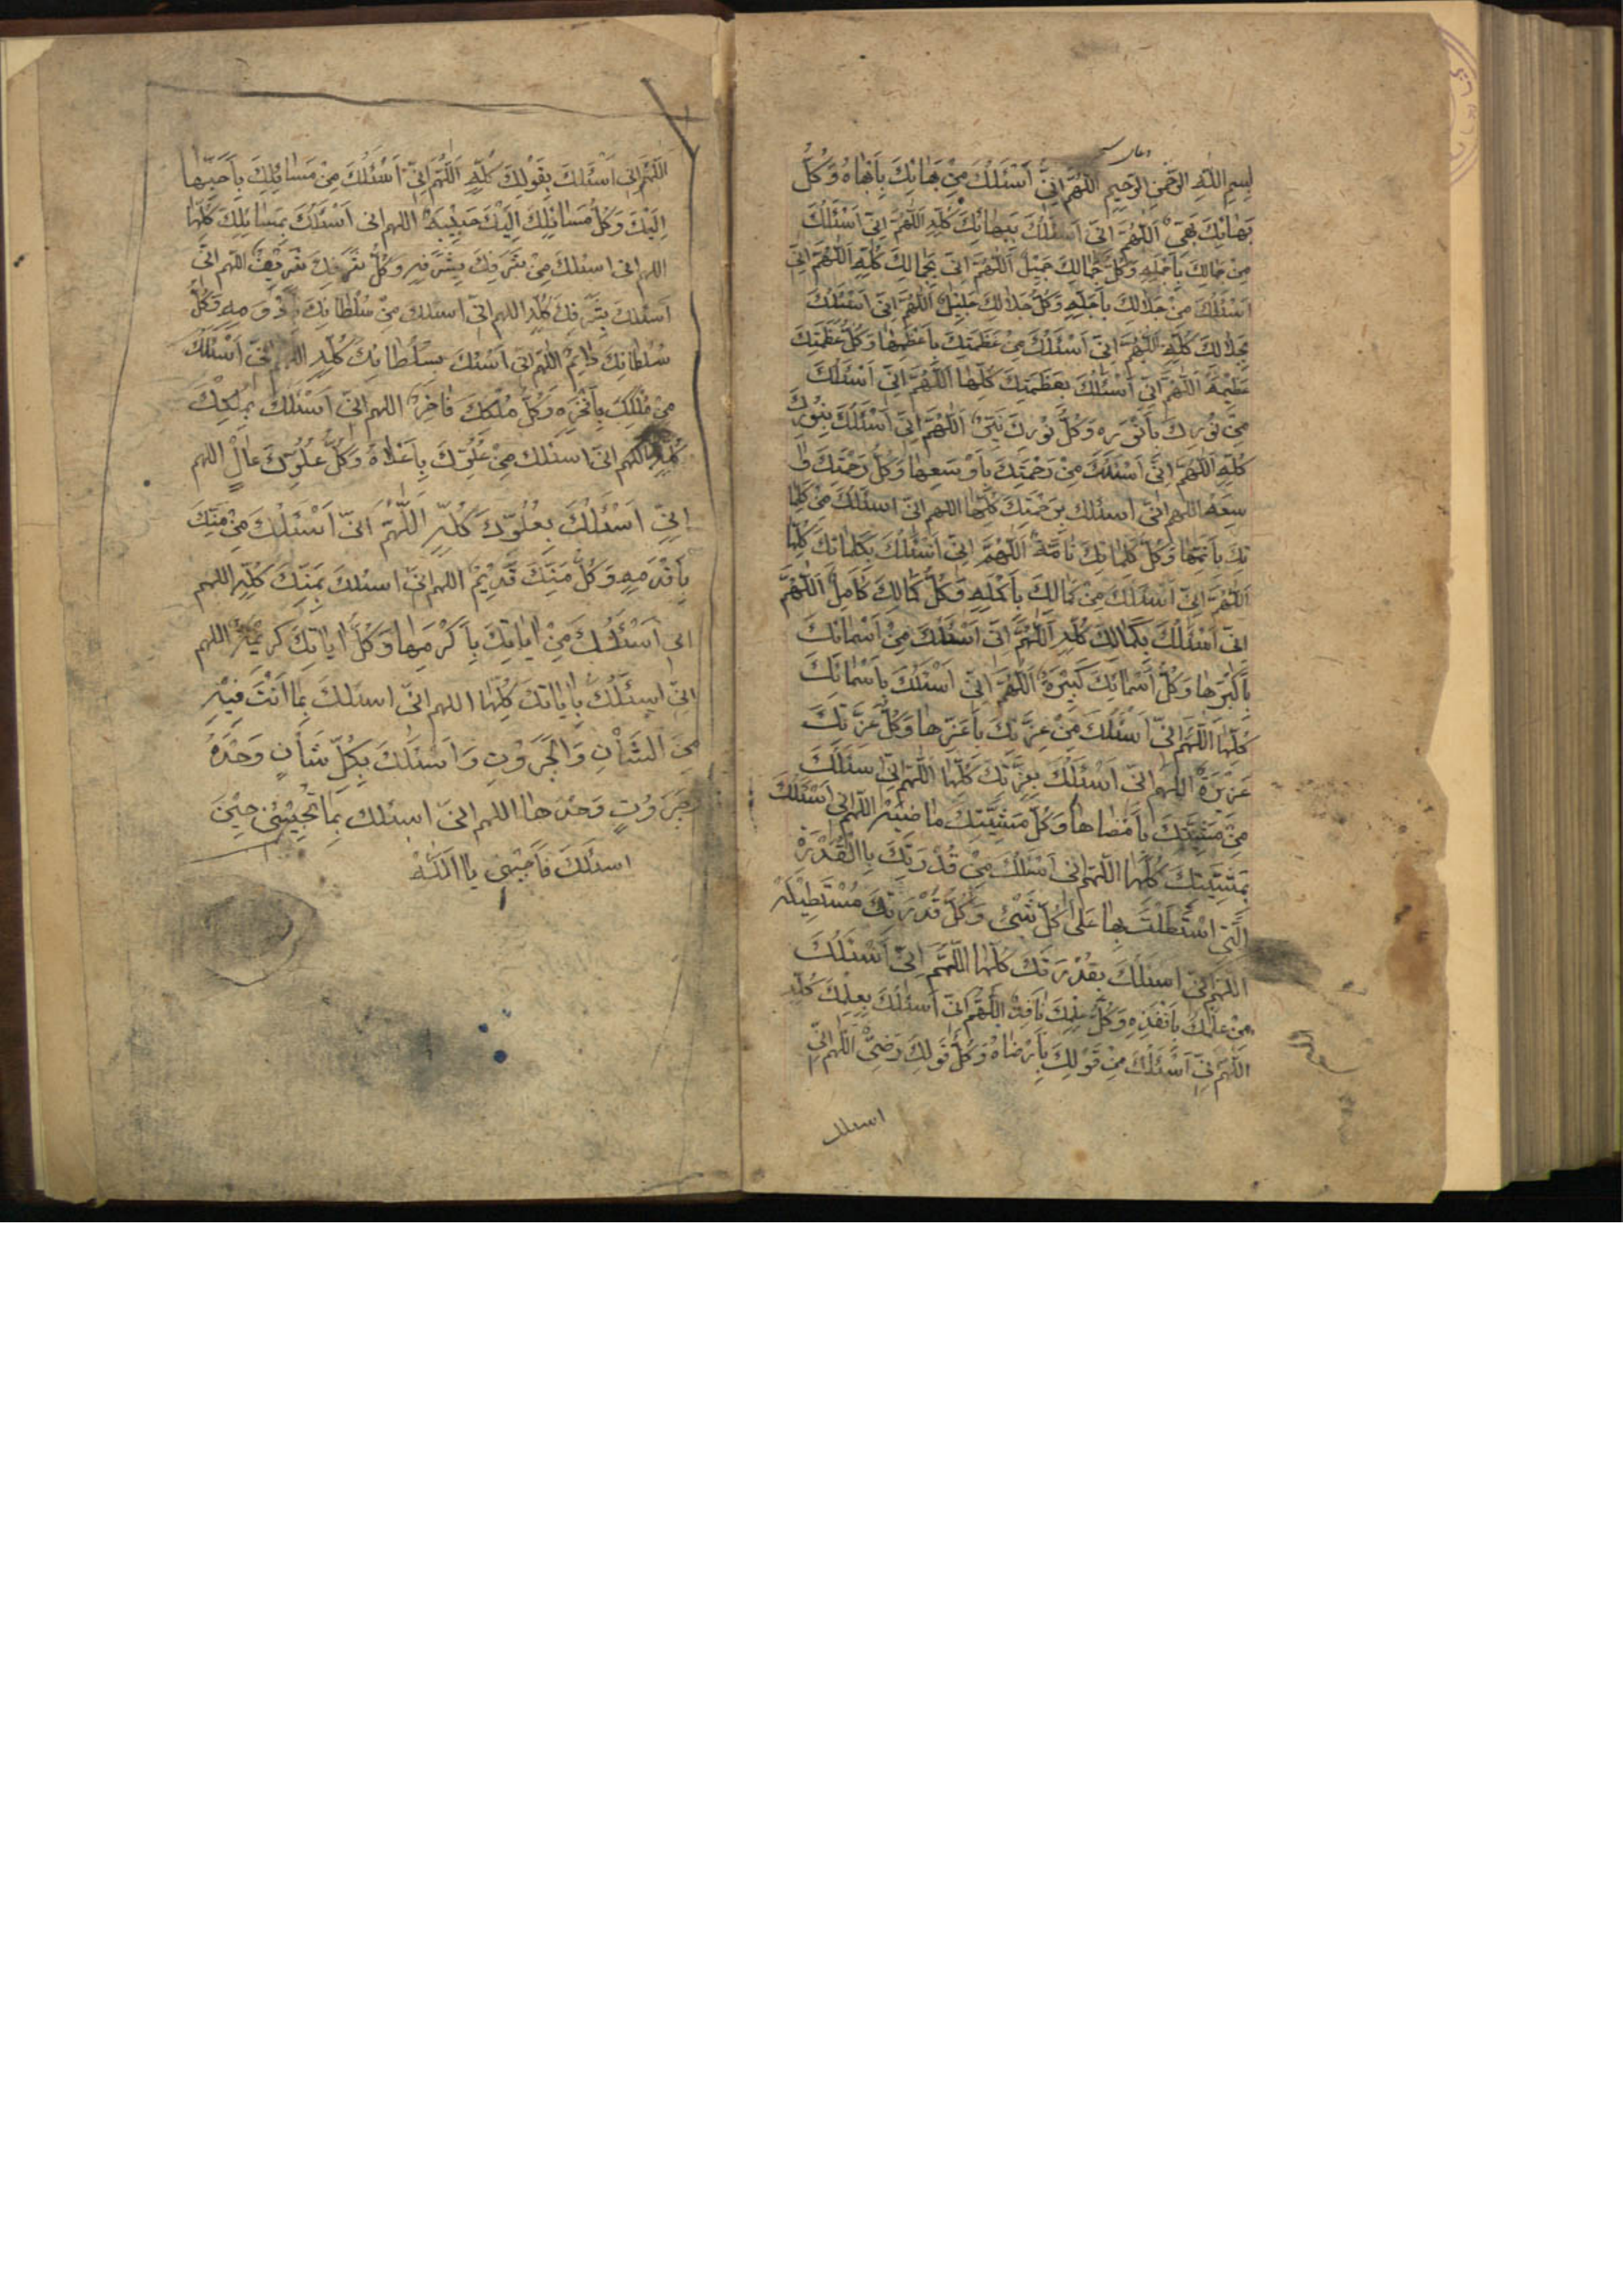 دعای سحر
بسم الله الرحمن الرحيم اللهم اني اسئلك من بهائك بابهاه وكل
بهائك بهي اللهم اني اسئلك ببهائك كله اللهم اني اسئلك
من جمالك باجمله وكل جمالك جميل اللهم اني بجمالك كله اللهم اني
اسئلك من جلالك باجله وكل جلالك جليل اللهم اني اسئلك
بجلالك كله اللهم اني اسئلك من عظمتك باعظمها وكل عظمتك
عظيمة اللهم اني اسئلك بعظمتك كلها اللهم اني اسئلك
من نورك بانوره وكل نورك نير اللهم اني اسئلك بنورك
كله اللهم اني اسئلك من رحمتك باوسعها وكل رحمتك وا
سعة اللهم اني اسئلك برحمتك كلها اللهم اني اسئلك من كلما
تك باتمها وكل كلماتك تامة اللهم اني اسئلك بكلماتك كلها
اللهم اني اسئلك من كمالك باكمله وكل كمالك كامل اللهم
اني اسئلك بكمالك كله اللهم اني اسئلك من اسمائك
باكبرها وكل اسمائك كبيرة اللهم اني اسئلك باسمائك
كلها اللهم اني اسئلك من عزتك باعزها وكل عزتك
عزيزة اللهم اني اسئلك بعزتك كلها اللهم اني اسئلك
من مشيتك بامضاها وكل مشيتك ماضية اللهم اني اسئلك
بمشيتك كلها اللهم اني اسئلك من قدرتك باالقدرة
التي استطلت بها على كل شئ وكل قدرتك مستطيلة
اللهم اني اسئلك بقدرتك كلها اللهم اني اسئلك
من علمك بانفذه وكل علمك نافذ اللهم اني اسئلك بعلمك كله
اللهم اني اسئلك من قولك بارضاه وكل قولك رضي اللهم اني
اسئلك
اللهم اني اسئلك بقولك كله اللهم اني اسئلك من مسائلك باحبها
اليك وكل مسائلك اليك حبيبة اللهم اني اسئلك بمسائلك كلها
اللهم اني اسئلك من شرفك بشرفه وكل شرفك شريف اللهم اني
اسئلك بشرفك كله اللهم اني اسئلك من سلطانك بادومه وكل
سلطانك دايم اللهم اني اسئلك بسلطانك كله اللهم اني اسئلك
من ملكك بافخره وكل ملكك فاخر اللهم اني اسئلك بملكك
كله اللهم اني اسئلك من علوك باعلاه وكل علوك عال اللهم
اني اسئلك بعلوك كله اللهم اني اسئلك من منك
باقدمه وكل منك قديم اللهم اني اسئلك بمنك كله اللهم
اني اسئلك من اياتك باكرمها وكل اياتك كريمة اللهم
اني اسئلك باياتك كلها اللهم اني اسئلك بما انت فيه
من الشأن والجبروت واسئلك بكل شأن وحده
وجبروت وحدها اللهم اني اسئلك بما تجيبني حين
اسئلك فاجبني يا الله